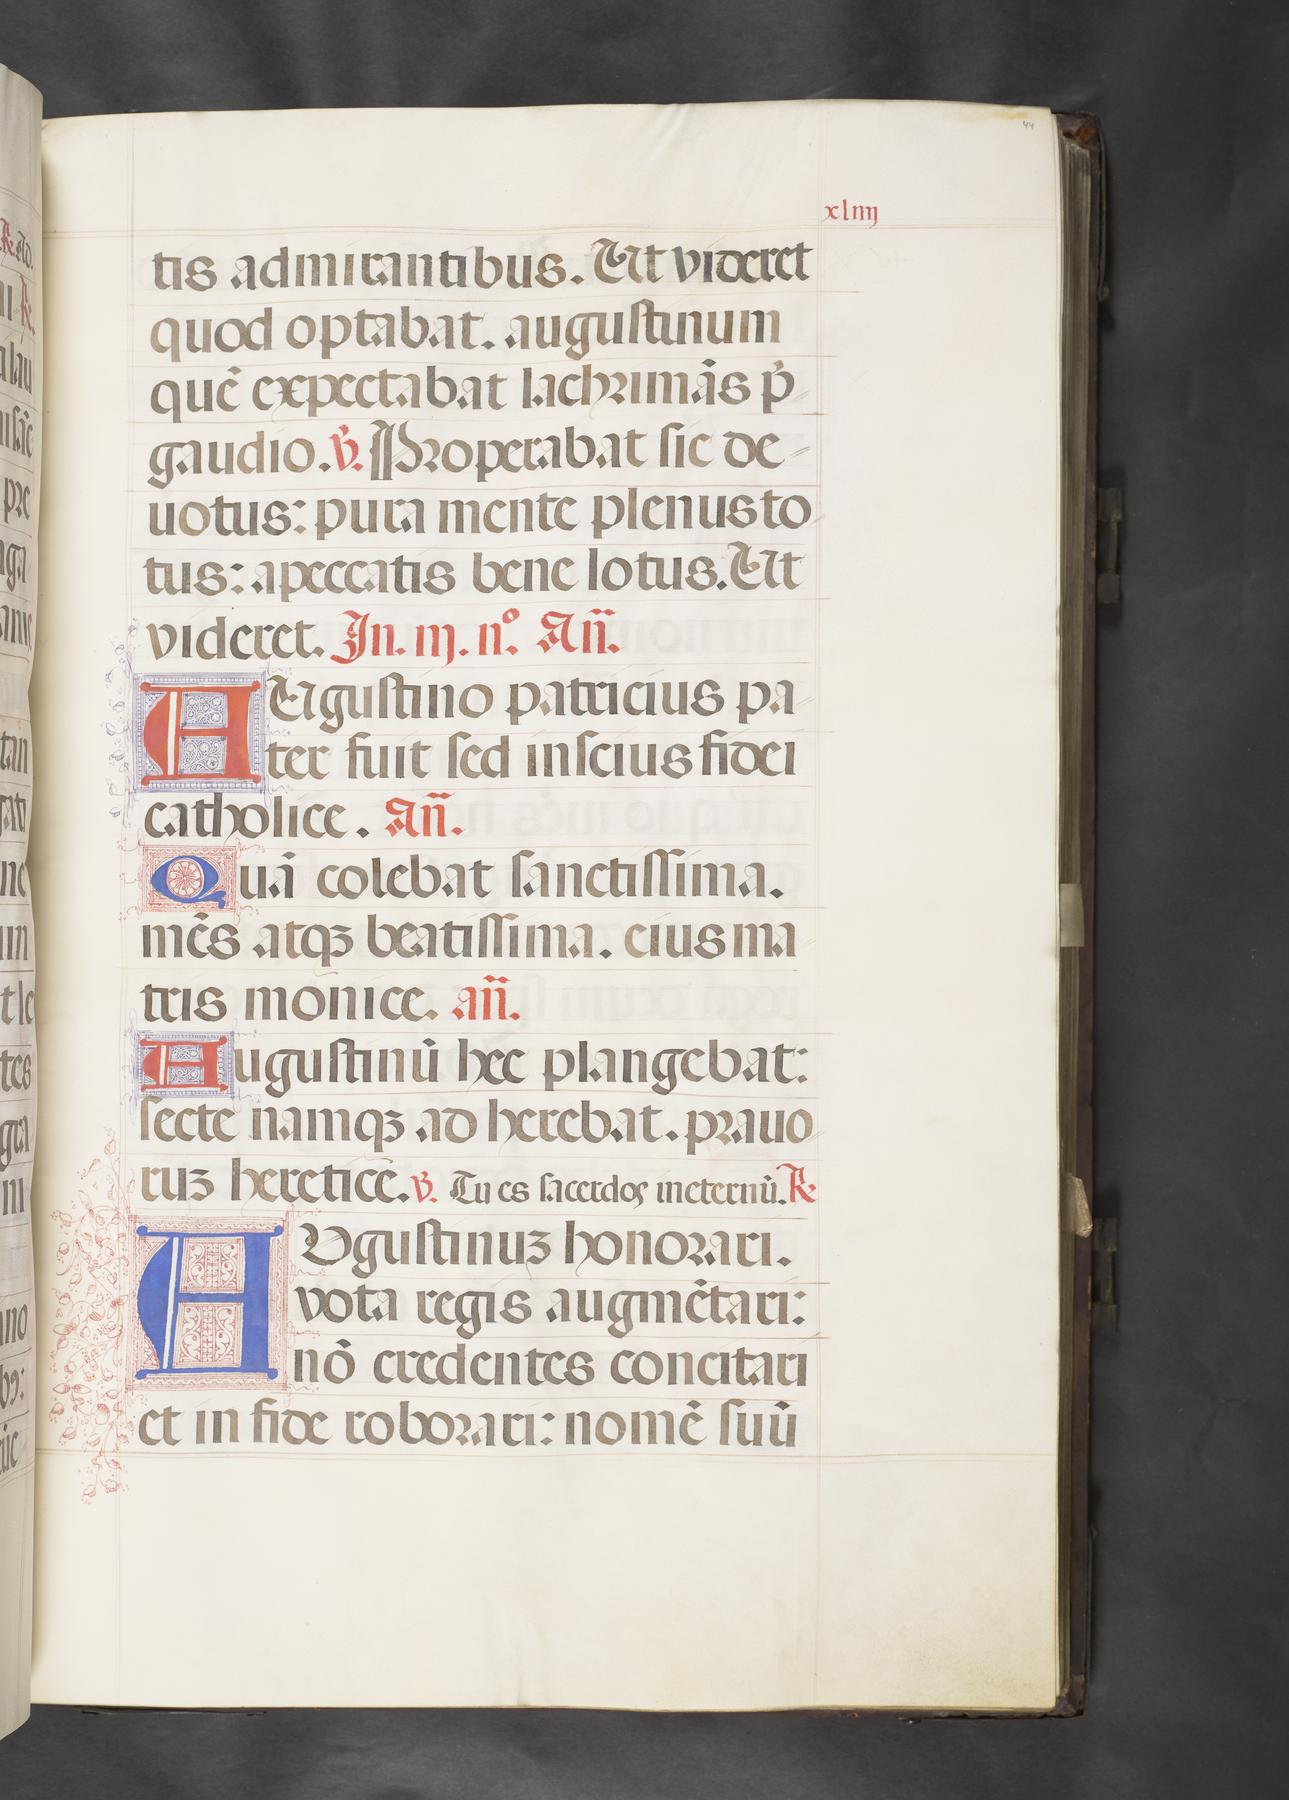 44
xliiij
tis admirantibus. Ut videret
quod optabat. augustinum
quē expectabat lachrimās p̄
gaudio. V̄. Properabat sic de-
uotus: pura mente plenus to
tus: a peccatis bene lotus. Ut
videret. In. iij. n°. Añ.
AUgustino patricius pa
ter fuit sed inscius fidei
catholice. Añ.
Quā colebat sanctissima.
mēs atqꝫ beatissima. eius ma
tris monice. añ.
Augustinū hec plangebat:
secte namqꝫ ad herebat. prauo
ruꝫ heretice. V̄. Tu es sacerdos ineternū. R.
AUgustinuꝫ honorari.
vota regis augmētari:
nō credentes concitari
et in fide roborari: nomē suū